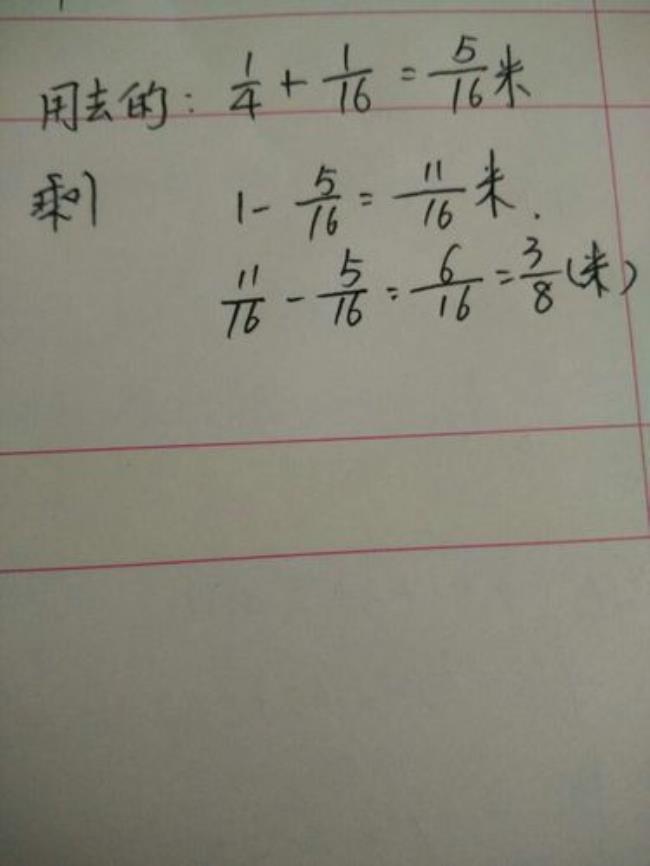 用去的: 1/4 + 1/16 = 5/16 米
剩 1 - 5/16 = 11/16 米.
11/16 - 5/16 = 6/16 = 3/8 (米)